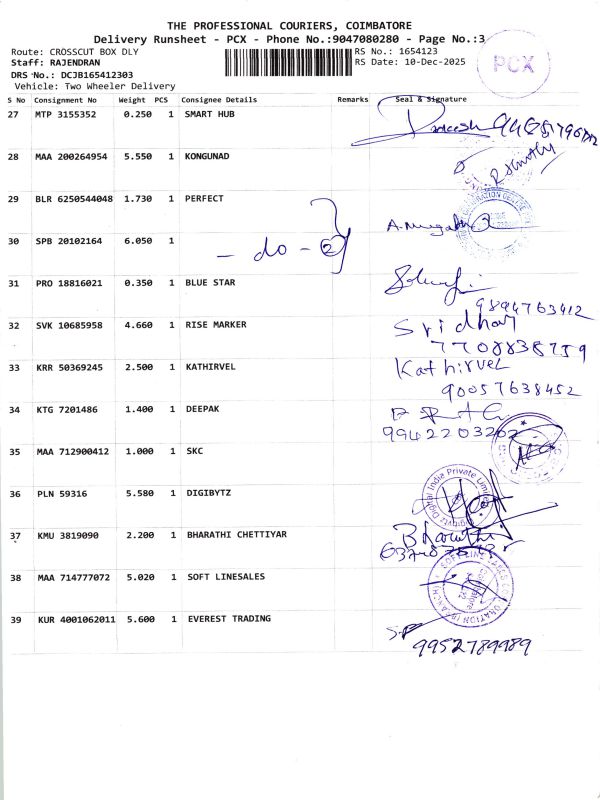 THE PROFESSIONAL COURIERS, COIMBATORE
Delivery Runsheet - PCX - Phone No.:9047080280 - Page No.:3
Route: CROSSCUT BOX DLY
RS No.: 1654123
Staff: RAJENDRAN
RS Date: 10-Dec-2025
PCX
DRS No.: DCJB165412303
Vehicle: Two Wheeler Delivery
S No Consignment No Weight PCS Consignee Details Remarks Seal & Signature
27 MTP 3155352 0.250 1 SMART HUB
28 MAA 200264954 5.550 1 KONGUNAD
29 BLR 6250544048 1.730 1 PERFECT
30 SPB 20102164 6.050 1
- do - 2
31 PRO 18816021 0.350 1 BLUE STAR
9894763412
32 SVK 10685958 4.660 1 RISE MARKER Sridhar
7708838759
33 KRR 50369245 2.500 1 KATHIRVEL Kathirvel
90057638452
34 KTG 7201486 1.400 1 DEEPAK
35 MAA 712900412 1.000 1 SKC
36 PLN 59316 5.580 1 DIGIBYTZ
37 KMU 3819090 2.200 1 BHARATHI CHETTIYAR Bharathi
38 MAA 714777072 5.020 1 SOFT LINESALES
39 KUR 4001062011 5.600 1 EVEREST TRADING
9952789989